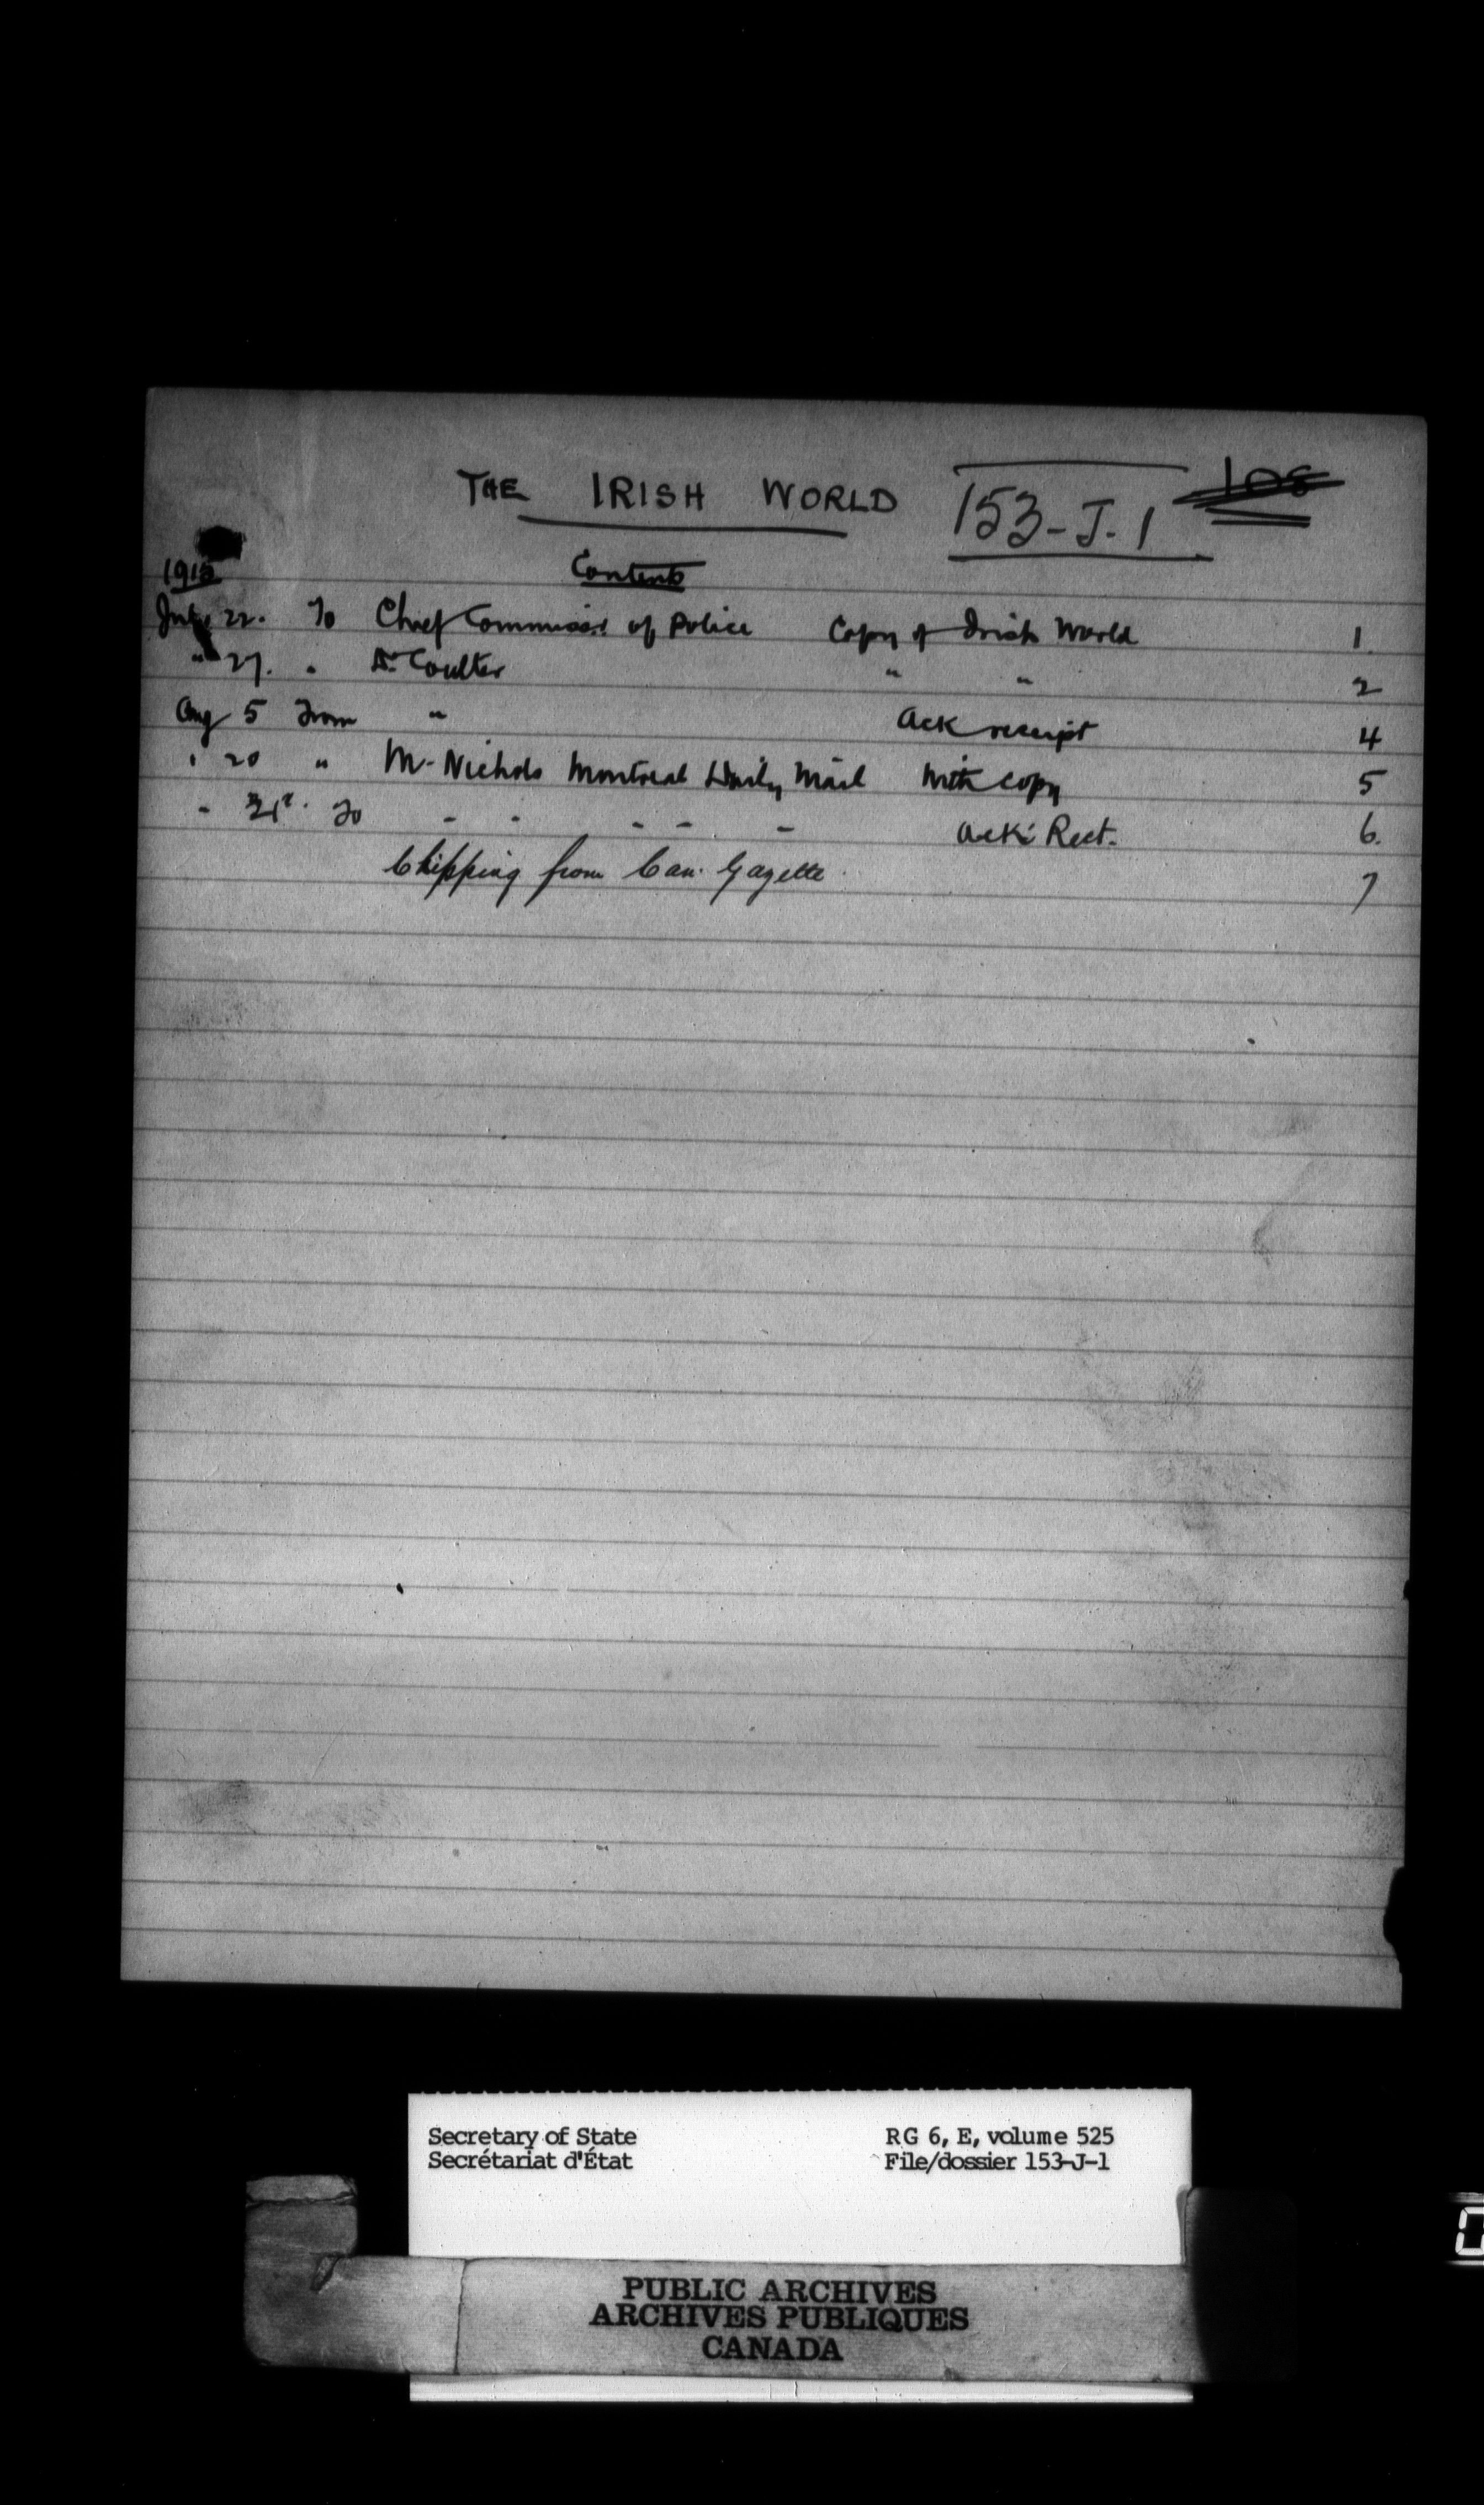 THE IRISH WORLD 153-J.1 108
Contents
July 22. To Chief Commissr. of Police Copy of Irish World 1.
" 27. " Dr. Coulter " " 2
Aug 5 From " Ack receipt 4
" 20 " Mr. Nichols Montreal Daily Mail With copy 5
" 21st. To " " " " " Ack: Rect. 6.
Clipping from Can. Gazette. 7
Secretary of State RG 6, E, volume 525
Secrétariat d'État File/dossier 153-J-1
PUBLIC ARCHIVES
ARCHIVES PUBLIQUES
CANADA